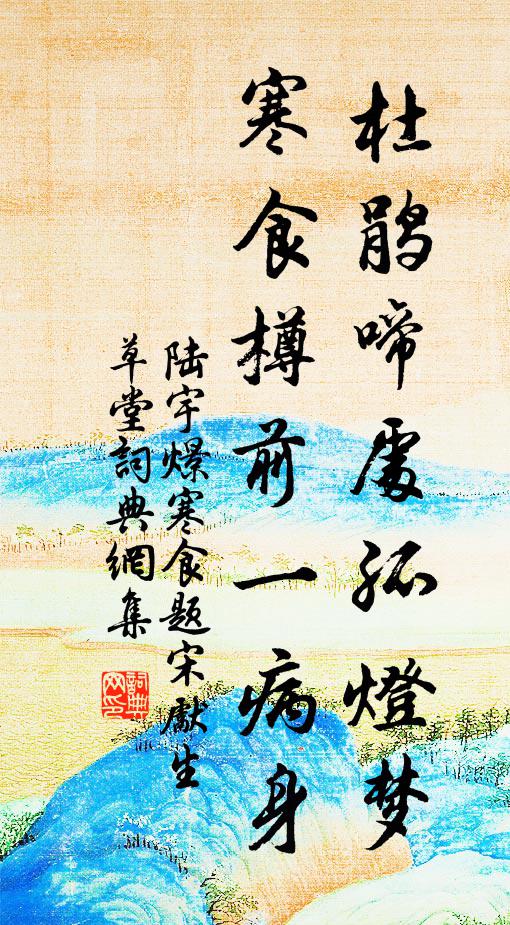 杜鹃啼處孤燈梦
寒食樽前一病身
陆宇燝寒食题宋獻生
草堂詞典網集
詞典網印